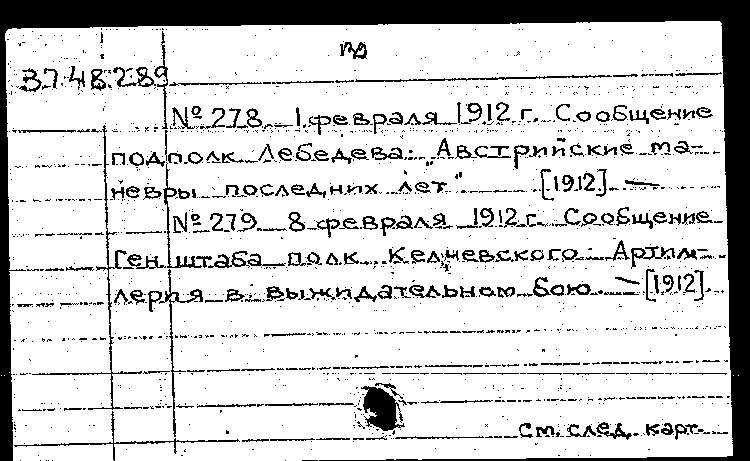 37.48.289
№ 278 1 февраля 1912 г. Сообщение
подполк. Лебедева: „Австрийские ма-
невры последних лет". [1912] —
№ 279 8 февраля 1912 г. Сообщение
Ген. штаба полк. Келчевского: Артил-
лерия в выжидательном бою. — [1912].
см. след. карт.